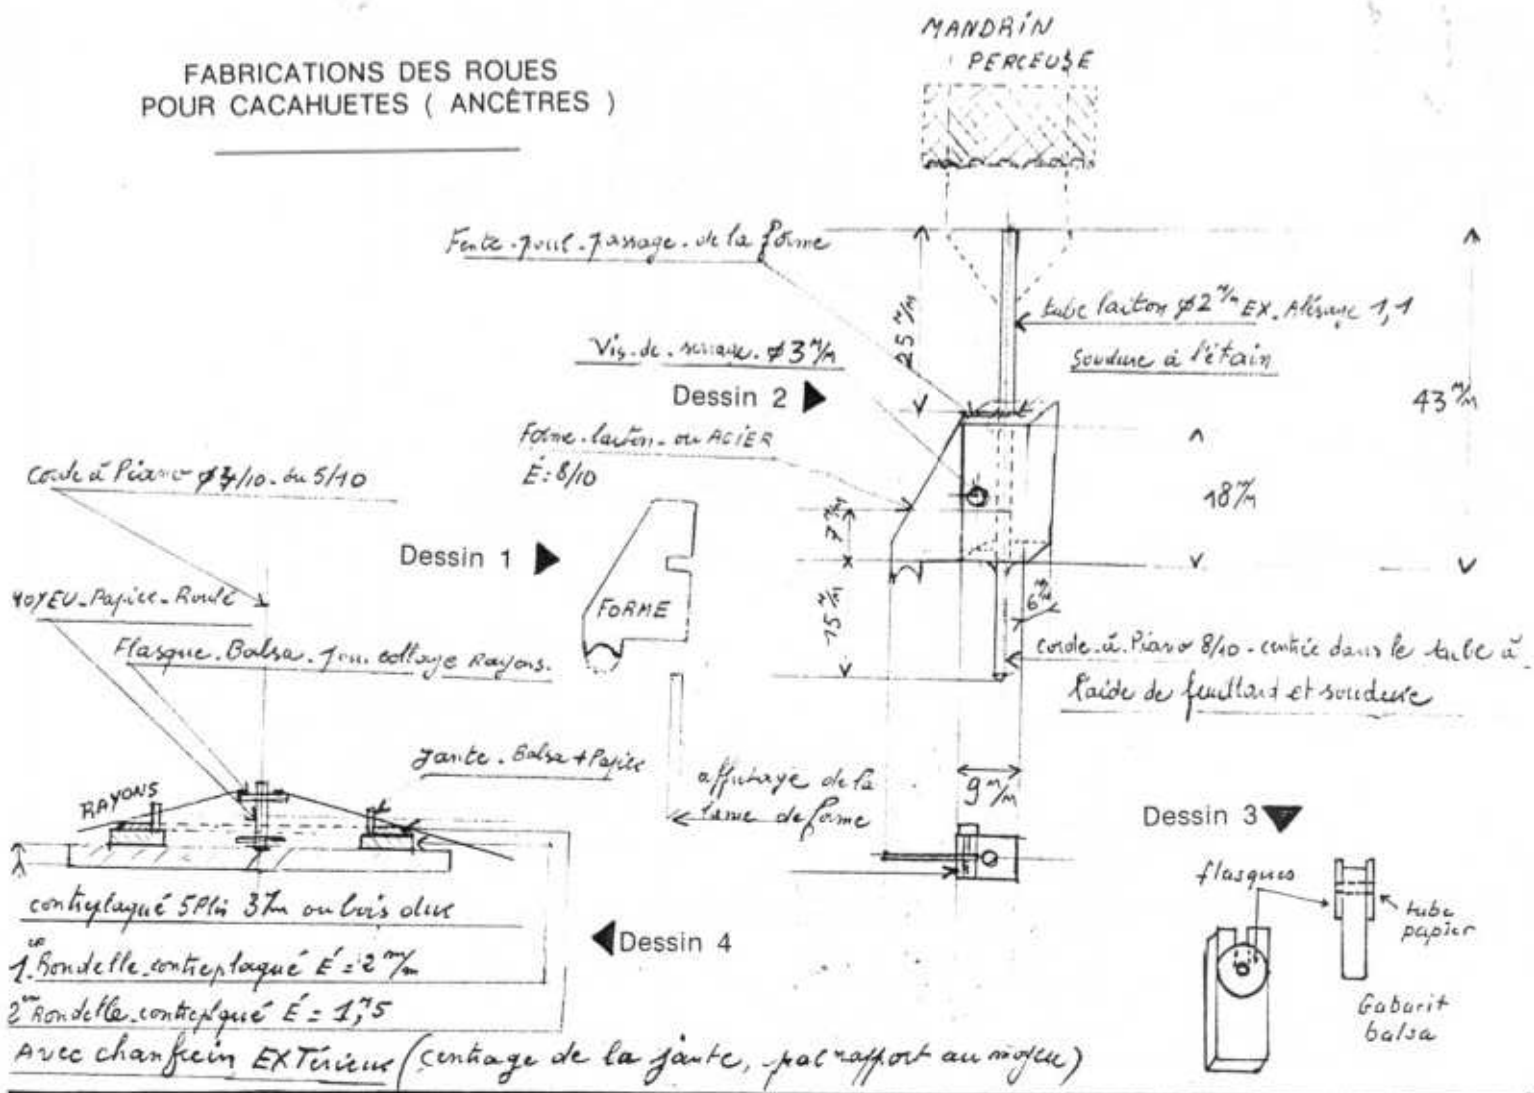 FABRICATIONS DES ROUES
POUR CACAHUETES ( ANCÊTRES )
MANDRIN
PERCEUSE
Fente-pour-passage-de la forme
25 m/m
tube laiton ø2 m/m EX. Alésage 1,1
soudure à l'étain
43 m/m
Vis-de-serrage-ø3 m/m
Dessin 2
Forme-laiton-ou ACIER
É: 8/10
18 m/m
7 m/m
Corde à Piano ø 4/10-ou 5/10
Dessin 1
FORME
MOYEU-Papier-Roulé
Flasque-Balsa-pour collage Rayons.
15 m/m
6 m/m
corde-à-Piano 8/10-centrée dans le tube à
l'aide de feuillard et soudure
Jante-Balsa+Papier
affutage de la
lame de forme
9 m/m
RAYONS
Dessin 3
flasques
tube
papier
contreplaqué 5 Plis 3 m/m ou bois dur
Dessin 4
1ere Rondelle-contreplaqué É = 2 m/m
2em Rondelle-contreplaqué É = 1,m5
Gabarit
balsa
Avec chanfrein EXTérieur (centrage de la jante, par rapport au moyeu)